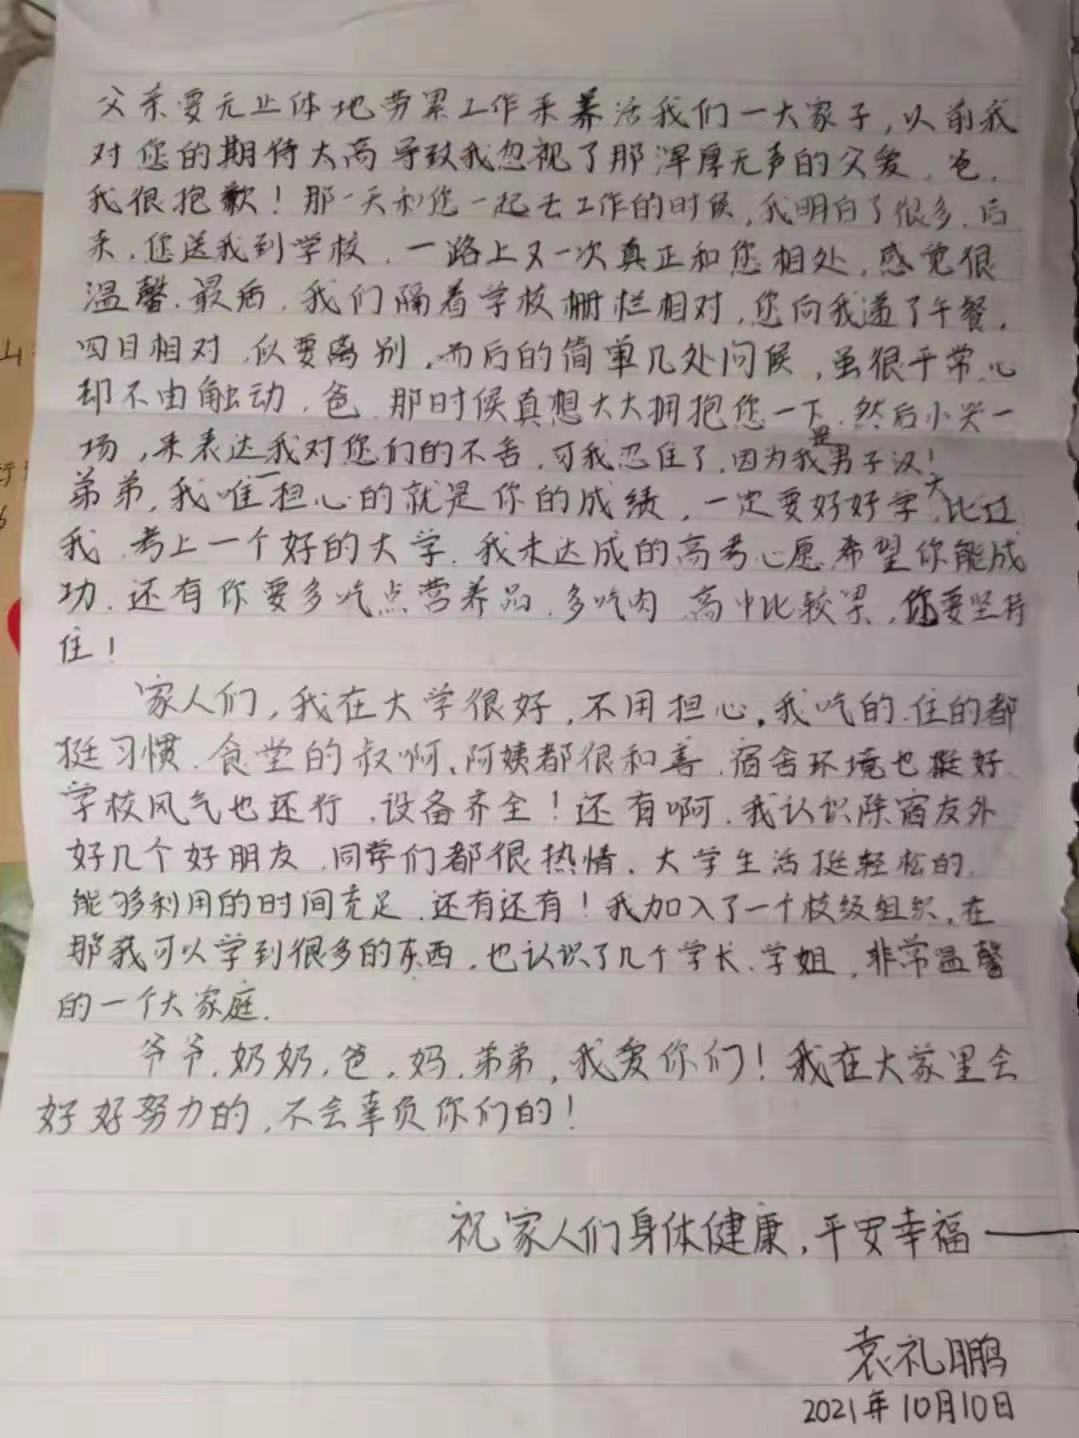 父亲要无止体地劳累工作来养活我们一大家子，以前我
对您的期待太高导致我忽视了那浑厚无声的父爱，爸，
我很抱歉！那一天和您一起去工作的时候，我明白了很多，后
来，您送我到学校，一路上又一次真正和您相处，感觉很
温馨，最后，我们隔着学校栅栏相对，您向我递了午餐，
四目相对，似要离别，而后的简单几处问候，虽很平常，心
却不由触动，爸，那时候真想大大拥抱您一下，然后小哭一
场，来表达我对您们的不舍，可我忍住了，因为我是男子汉！
弟弟，我唯一担心的就是你的成绩，一定要好好学，大比过
我，考上一个好的大学，我未达成的高考心愿希望你能成
功，还有你要多吃点营养品，多吃肉，高中比较累，你要坚持
住！
家人们，我在大学很好，不用担心。我吃的、住的都
挺习惯，食堂的叔啊、阿姨都很和善，宿舍环境也挺好，
学校风气也还行，设备齐全！还有啊，我认识除宿友外
好几个好朋友，同学们都很热情，大学生活挺轻松的，
能够利用的时间充足，还有还有！我加入了一个校级组织，在
那我可以学到很多的东西，也认识了几个学长、学姐，非常温馨
的一个大家庭．
爷爷，奶奶，爸，妈，弟弟，我爱你们！我在大家里会
好好努力的，不会辜负你们的！
祝家人们身体健康，平安幸福——
袁礼鹏
2021年10月10日